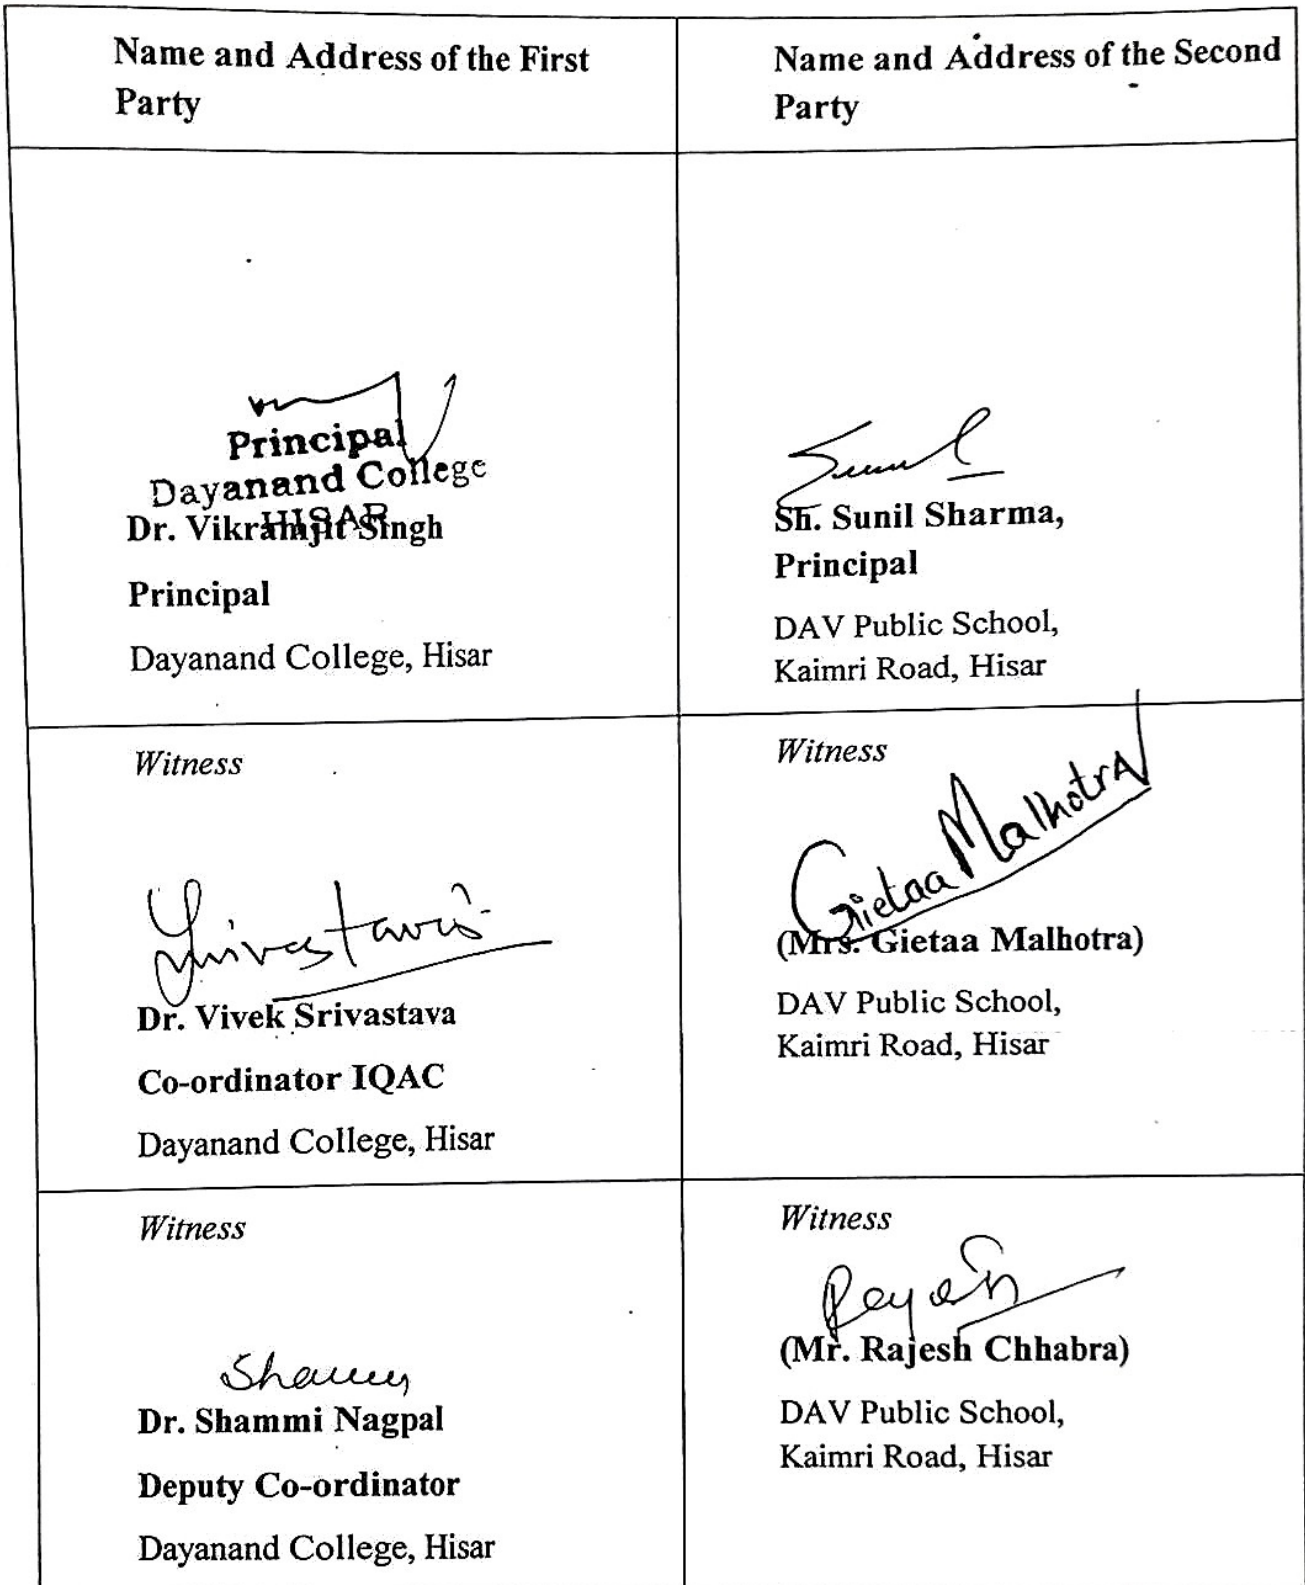 Name and Address of the First
Party
Name and Address of the Second
Party
Principal
Dayanand College
HISAR
Dr. Vikramjit Singh
Principal
Dayanand College, Hisar
Sunil
Sh. Sunil Sharma,
Principal
DAV Public School,
Kaimri Road, Hisar
Witness
Srivastava
Dr. Vivek Srivastava
Co-ordinator IQAC
Dayanand College, Hisar
Witness
Gietaa Malhotra
(Mrs. Gietaa Malhotra)
DAV Public School,
Kaimri Road, Hisar
Witness
Shammi
Dr. Shammi Nagpal
Deputy Co-ordinator
Dayanand College, Hisar
Witness
Rajesh
(Mr. Rajesh Chhabra)
DAV Public School,
Kaimri Road, Hisar